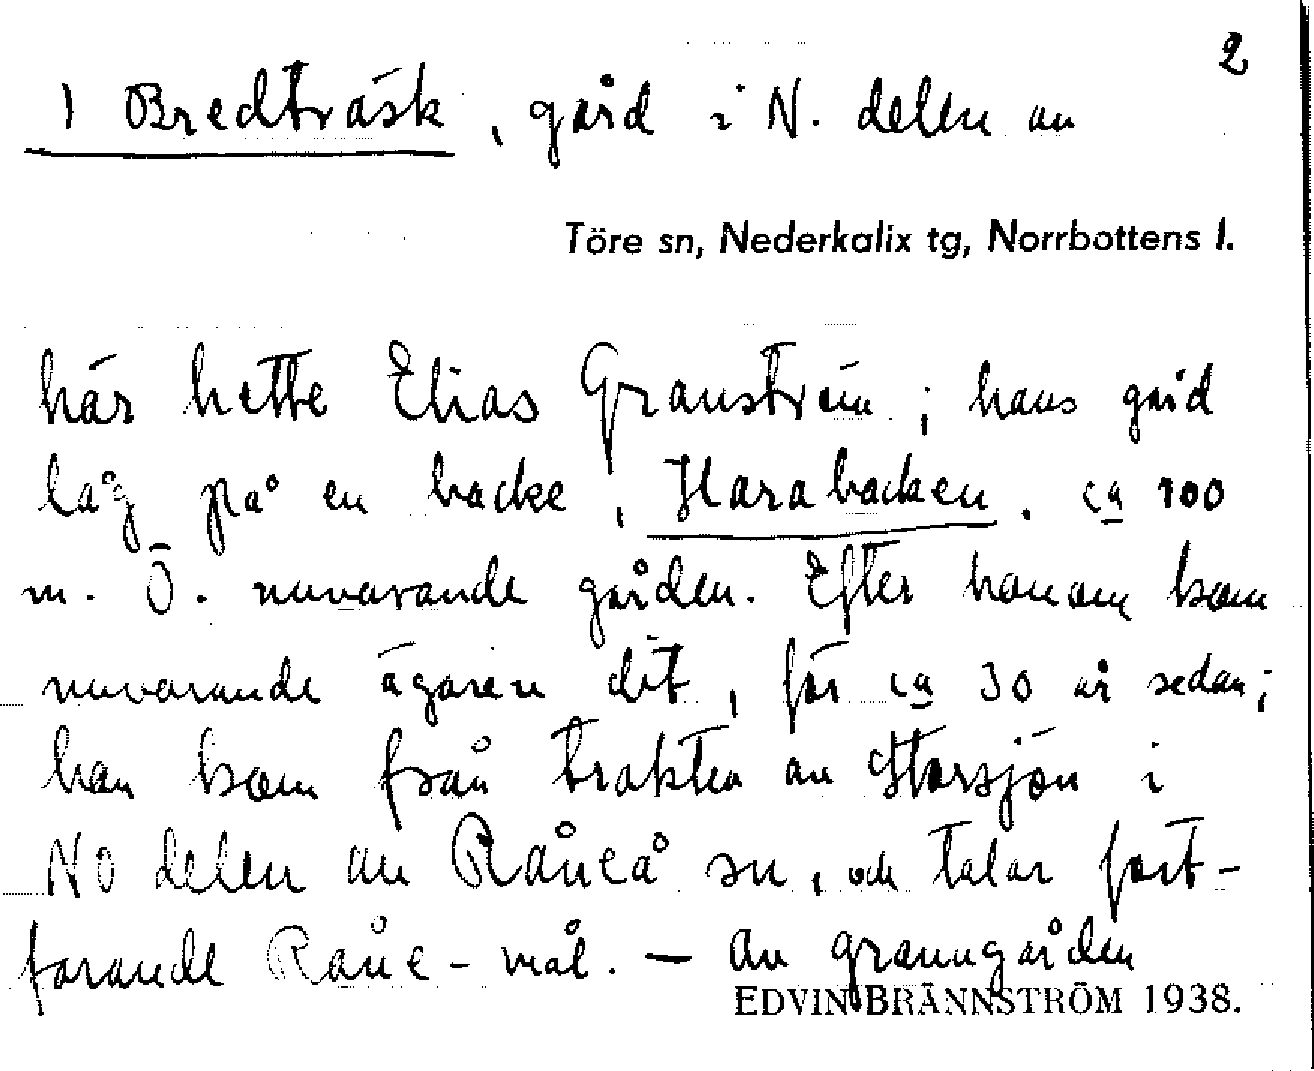 2
1 Bredträsk, gård i N. delen av
Töre sn, Nederkalix tg, Norrbottens l.
här hette Elias Granström; hans gård
låg på en backe, Harabacken, ca 100
m. Ö. nuvarande gården. Efter honom kom
nuvarande ägaren dit, för ca 30 år sedan;
han kom från trakten av Storsjön i
NO delen av Råneå sn, och talar fort-
farande Råne-mål. — Av granngården
EDVIN BRÄNNSTRÖM 1938.